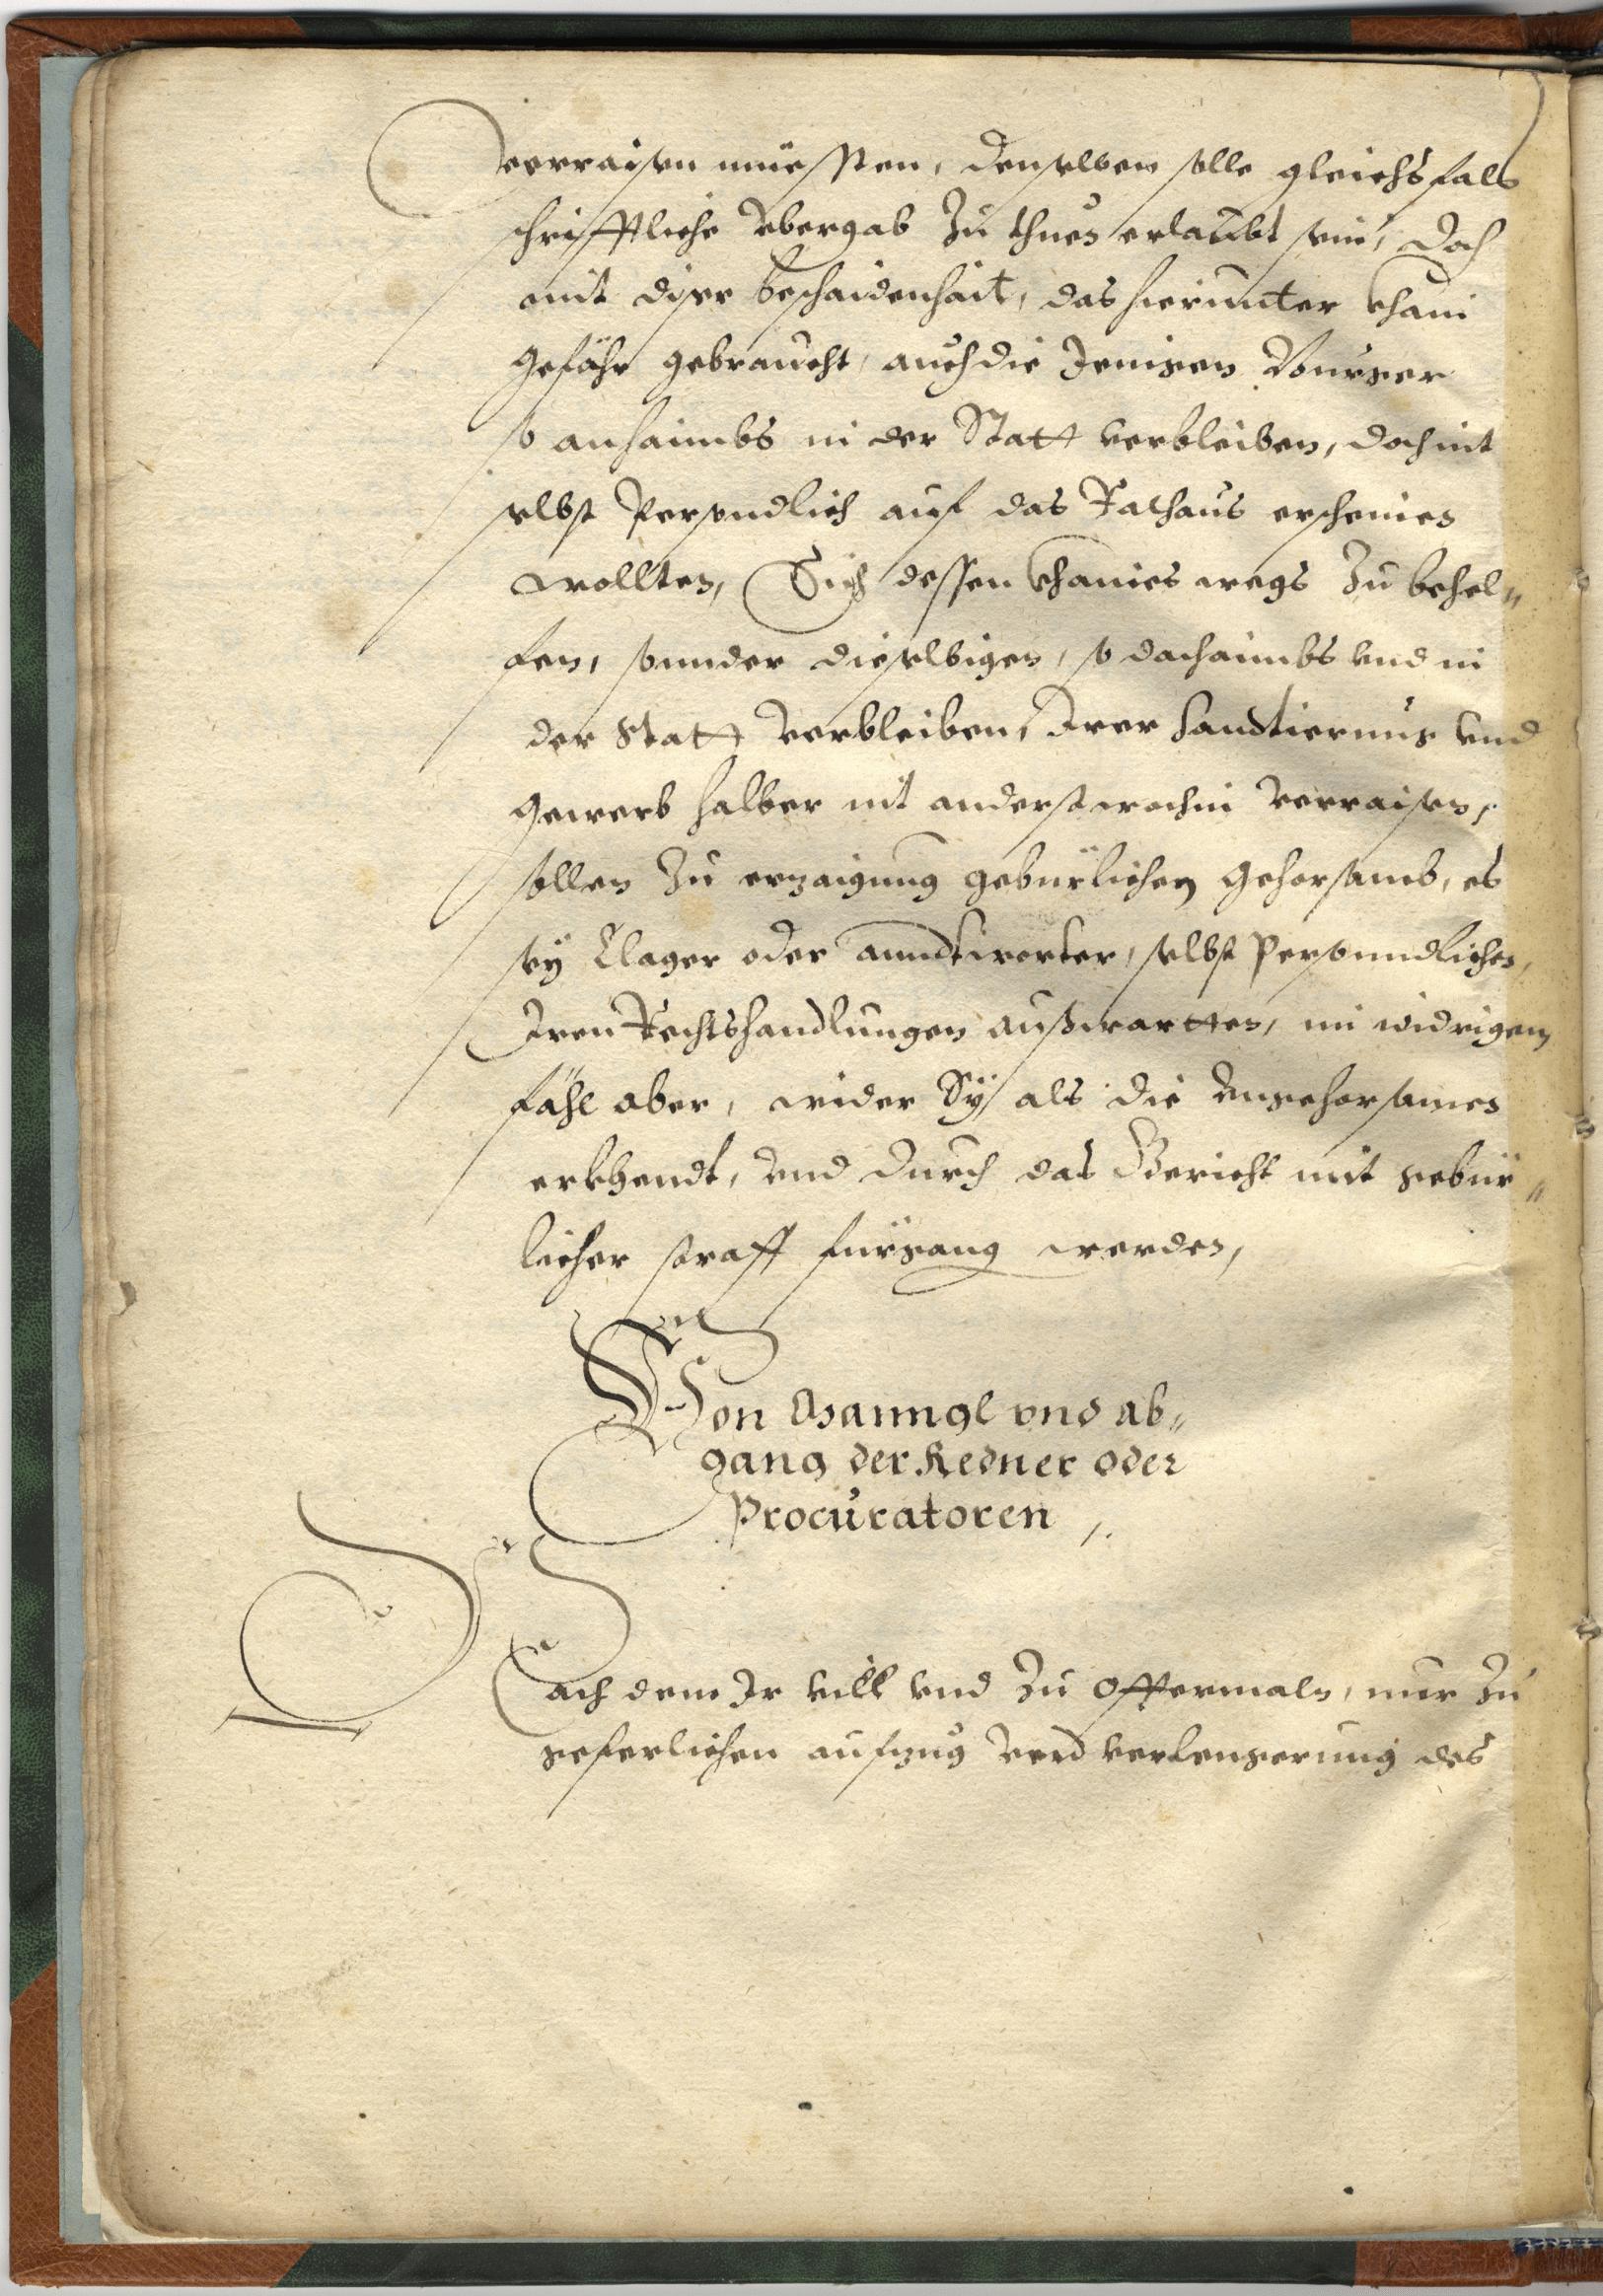 verraisen müessten, denselben solle gleichsfals
schrifftliche Vbergab Zu thuen erlaubt sein, doch
mit diser beschaidenhait, das hierunter khain
gefähr gebraucht, auch die Jenigen Burger
so anhaimbs in der Statt verbleiben, doch nit
selbst Persondlich auf das Rathaus erscheinen
wollten, Sich dessen khaines wegs Zu behel„
fen, sonnder dieselbigen, so dachaimbs vnd in
der Statt verbleiben, Irer handtierung vnd
gewerb halber nit anderstwohin verraisen,
sollen Zu erzaigung gebürlichen gehorsamb, es
sey Clager oder anndtworter, selbst Personndlichen,
Iren Rechtshandlungen außwartten, im widrigem
fähl aber, wider Sy als die vngehorsamen
erkhendt, vnd durch das Gericht mit gebür„
licher straff fürgang werden,
Von Manngl vnd ab„
gang der Redner oder
Procuratoren ,.
Nach dem Ir vill vnd Zu Offtermaln, nur Zu
geferlichen aufzug vnd verlengerung des